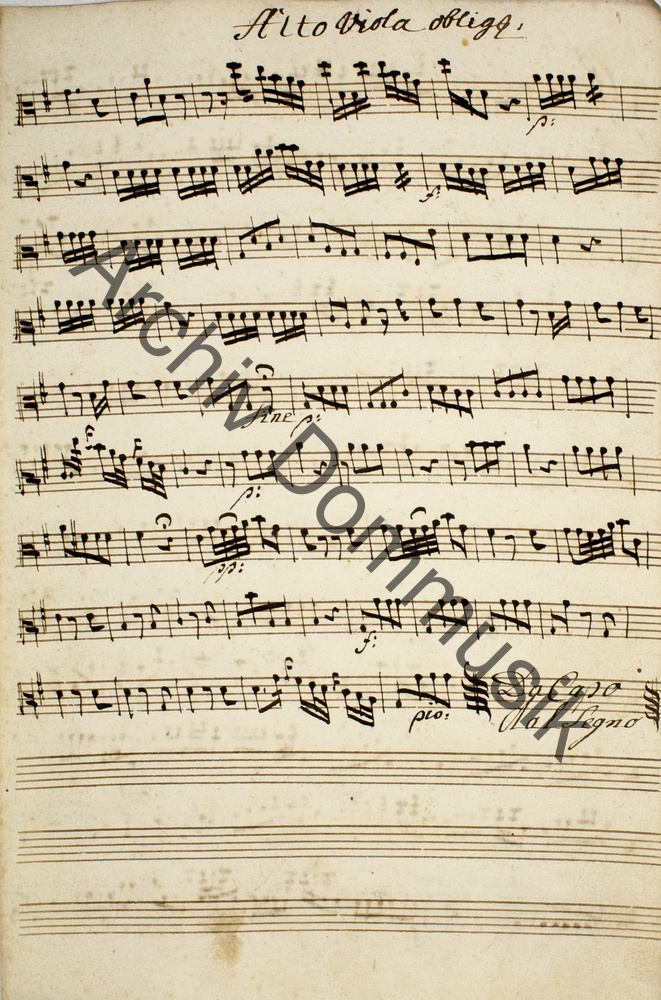 Alto Viola oblig:
p:
f:
fine p:
p:
pp:
f:
pio: Da Capo
dal Segno
Archiv Dommusik